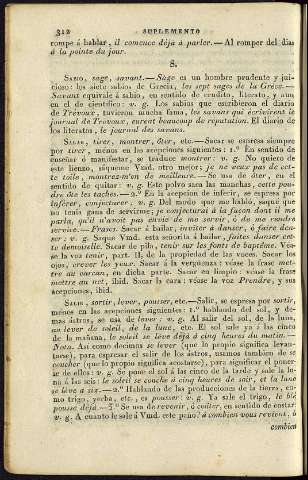 312 SUPLEMENTO
rompe á hablar, il comence déjà à parler. — Al romper del dias
à la pointe du jour.
S.
SABIO, sage, savant. — Sage es un hombre prudente y jui-
cioso: los siete sabios de Grecia, les sept sages de la Grèce. —
Savant equivale á sabio, en sentido de erudito, literato, y aun
en el de científico: v. g. Los sabios que escribieron el diario
de Trévoux, tuvieron mucha fama, les savans qui écrivirent le
journal de Trévoux, eurent beaucoup de réputation. El diario de
los literatos, le journal des savans.
SACAR, tirer, montrer, ôter, etc. — Sacar se espresa siempre
por tirer, ménos en las acepciones siguientes: 1.ª En sentido de
enseñar ó manifestar, se traduce montrer: v. g. No quiero de
este lienzo, sáqueme Vmd. otro mejor; je ne veux pas de cet-
te toile, montrez-m'en de meilleure. — Se usa de ôter, en el
sentido de quitar: v. g. Este polvo saca las manchas, cette pou-
dre ôte les taches. — 2.ª En la acepcion de inferir, se espresa por
inférer, conjecturer: v. g. Del modo que me habló, saqué que
no tenia gana de servirme; je conjecturai à la façon dont il me
parla, qu'il n'avoit pas envie de me servir, ó de me rendre
service. — Frases. Sacar á bailar, inviter à danser, ó faire dan-
ser: v. g. Saque Vmd. esta señorita á bailar, faites danser cet-
te demoiselle. Sacar de pila, tenir sur les fonts de baptême. Véa-
se la voz tenir, part. II, de la propiedad de las voces. Sacar los
ojos, crever les yeux. Sacar á la vergüenza: véase la frase met-
tre au carcan, en dicha parte. Sacar en limpio: véase la frase
mettre au net, ibid. Sacar la cara: véase la voz Prendre, y sus
acepciones, ibid.
SALIR, sortir, lever, pousser, etc. — Salir, se espresa por sortir,
ménos en las acepciones siguientes: 1.ª hablando del sol, y de-
mas astros, se usa de lever: v. g. Al salir del sol, de la luna,
au lever du soleil, de la lune, etc. El sol sale ya á las cinco
de la mañana, le soleil se lève déjà à cinq heures du matin. —
Nota. Asi como decimos se lever (que lo propio significa levan-
tarse), para espresar el salir de los astros, usamos tambien de se
coucher (que lo propio significa acostarse), para significar el poner-
se de ellos: v. g. Se pone el sol á las cinco de la tarde y sale la lu-
na á las seis: le soleil se couche à cinq heures de soir, et la lune
se lève à six. — 2.ª Hablando de las producciones de la tierra, co-
mo trigo, yerba, etc., es pousser: v. g. Ya sale el trigo, le blé
pousse déjà. — 3.ª Se usa de revenir, ó coûter, en sentido de costar:
v. g. A cuanto le salé á Vmd. este paño? à combien vous revient, ó
combien